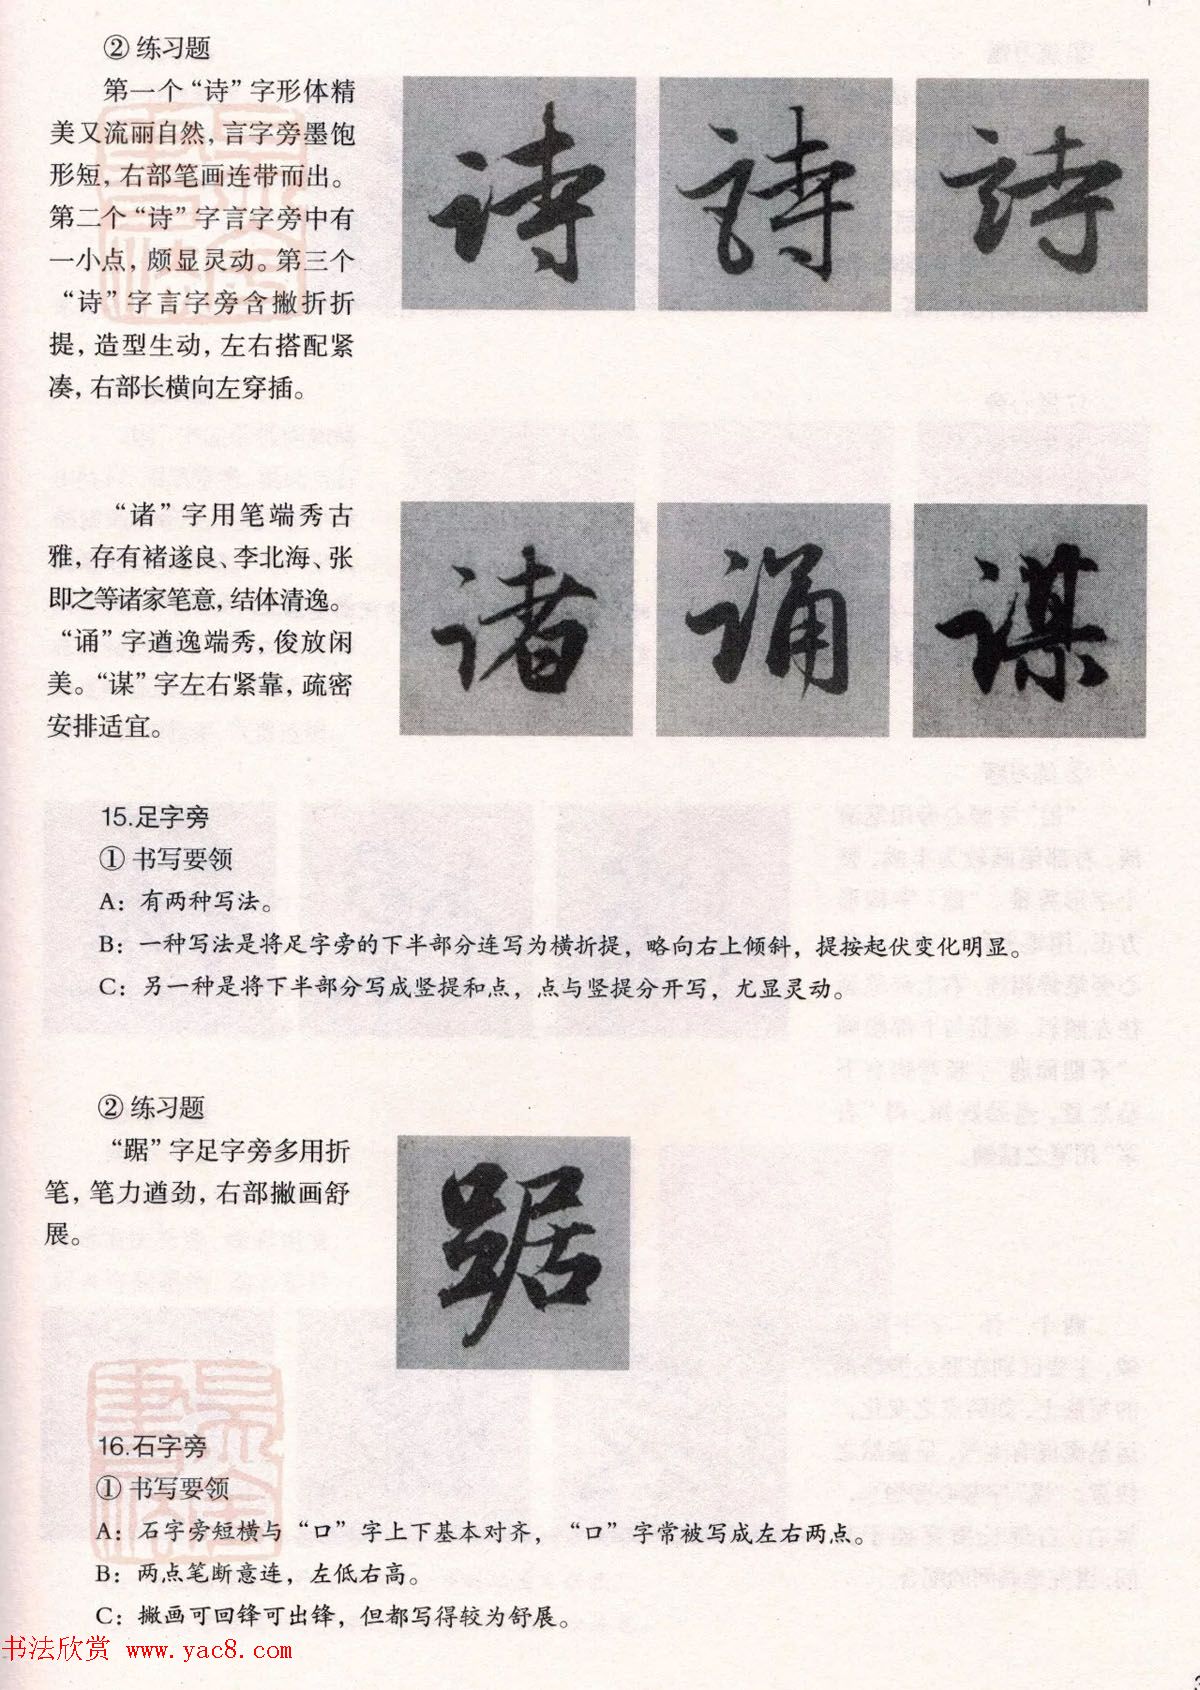 ② 练习题
第一个“诗”字形体精
美又流丽自然，言字旁墨饱
形短，右部笔画连带而出。
第二个“诗”字言字旁中有
一小点，颇显灵动。第三个
“诗”字言字旁含撇折折
提，造型生动，左右搭配紧
凑，右部长横向左穿插。
诗 诗 诗
“诸”字用笔端秀古
雅，存有褚遂良、李北海、张
即之等诸家笔意，结体清逸。
“诵”字遒逸端秀，俊放闲
美。“谋”字左右紧靠，疏密
安排适宜。
诸 诵 谋
15.足字旁
① 书写要领
A：有两种写法。
B：一种写法是将足字旁的下半部分连写为横折提，略向右上倾斜，提按起伏变化明显。
C：另一种是将下半部分写成竖提和点，点与竖提分开写，尤显灵动。
② 练习题
“踞”字足字旁多用折
笔，笔力遒劲，右部撇画舒
展。
踞
16.石字旁
① 书写要领
A：石字旁短横与“口”字上下基本对齐，“口”字常被写成左右两点。
B：两点笔断意连，左低右高。
C：撇画可回锋可出锋，但都写得较为舒展。
书法欣赏 www.yac8.com